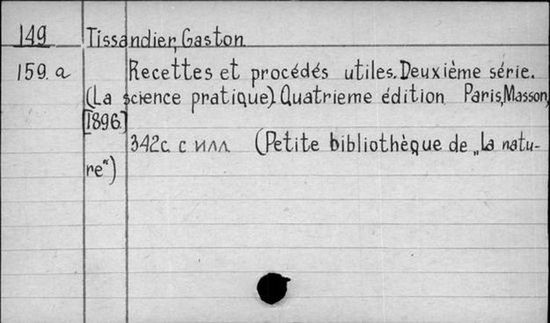 149 Tissandier, Gaston
159.a Recettes et procédés utiles. Deuxième série.
(La science pratique). Quatrieme édition Paris, Masson,
[1896.]
342с. с илл (Petite bibliothèque de „La natu-
re“)